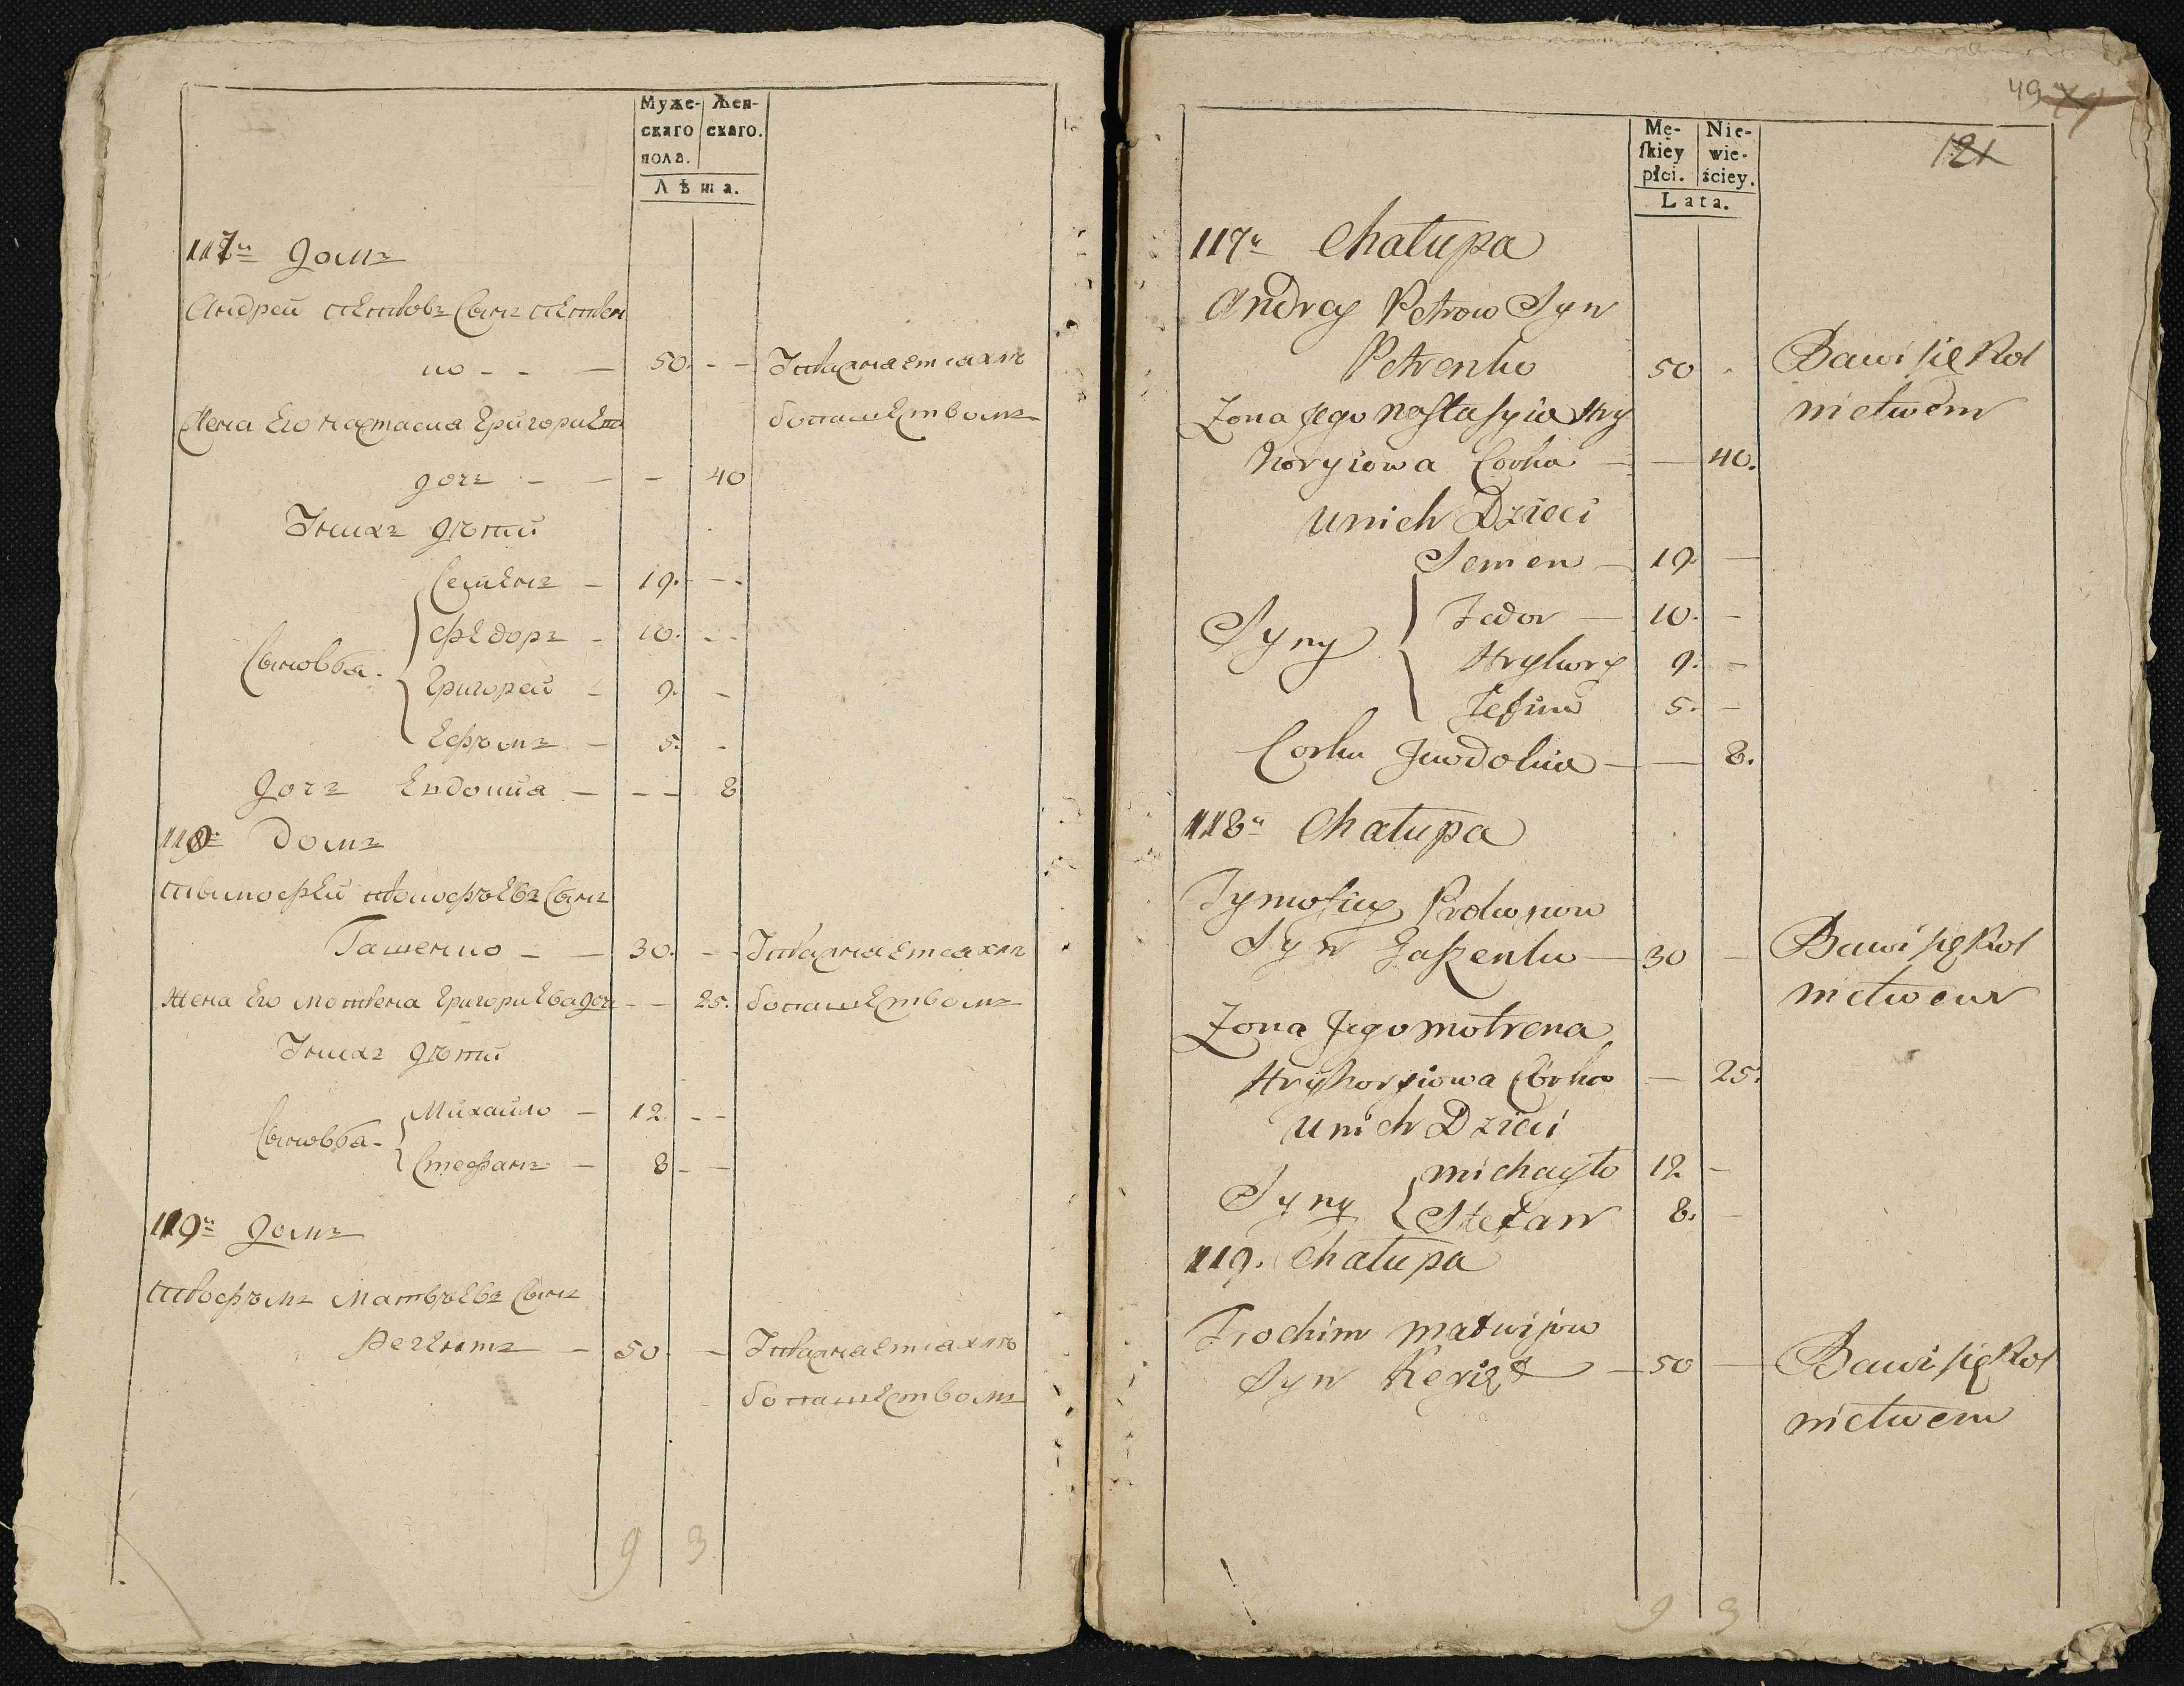 Муже-
скаго
пола.
Жен-
скаго.
Лѣта.
117й домъ
Андрей Петровъ Сынъ Петрен
ко - - — 50. - - Упражняется хлѣ
Жена Его Настасия Григориева бопашествомъ
дочъ - — - 40
Унихъ дѣти
Семенъ — 19. - -
Федоръ - 10. - -
Сыновья - Григорей - 9. -
Ефимъ — 5. -
дочъ Евдокия — - — 8
118й домъ
Тимофей Прокофьевъ Сынъ
Гашенко — — 30. - - Упражняется хлѣ
Жена Его Мотрена Григориева дочъ - — 25. бопашествомъ
Унихъ дѣти
Михайло — 12 - -
Сыновья -
Стефанъ — 8 - -
119й домъ
Трофимъ Матвѣевъ Сынъ
— 50 - Упражняется хлѣ
бопашествомъ
9 3
49
121
Mę-
skiey
płci.
Nie-
wie-
ściey.
Lata.
117a Chałupa
Andrey Petrow Syn
Petrenko 50 - Bawi się Rol
Zona Jego Nastasyia Hry nictwem
horyiowa Corka — — 40.
Unich Dzieci
Semen — 19. —
Fedor — 10. -
Syny Hryhory 9. -
Jefim 5. -
Corka Jewdokia — — 8.
118a Chałupa
Tymofiey Prokopow
Syn Gaszenko — 30 — Bawi się Rol
nictwem
Zona Jego Motrena
Hryhoryiowa Córka — 25.
Unich Dzieci
Michayło 12 —
Syny
Stefan 8. -
119. Chałupa
Trochim Matwijow
Syn — 50 — Bawi się Rol
nictwem
9 3